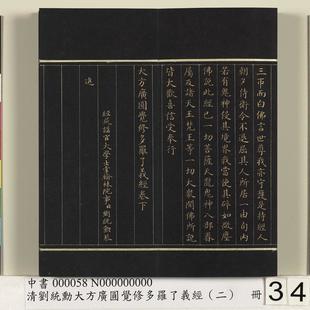 三帀而白佛言世尊我亦守護是持經人
朝夕侍衛令不退屈其人所居一由旬內
若有鬼神侵其境界我當使其碎如微塵
佛說此經已一切菩薩天龍鬼神八部眷
屬及諸天王梵王等一切大眾聞佛所說
皆大歡喜信受奉行
大方廣圓覺修多羅了義經卷下
經筵講官大學士掌翰林院事臣劉統勳恭
中書 000058 N000000000
清劉統勳大方廣圓覺修多羅了義經（二） 冊 34